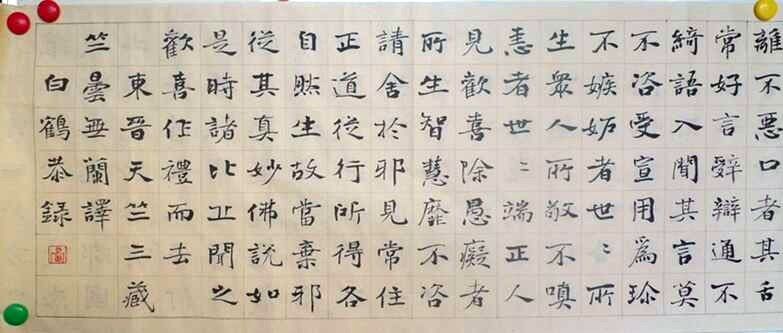 離不惡口者其舌
常好言辭辯通不
綺語人聞其言莫
不咨受宣用為珍
不嫉妬者世〻所
生眾人所敬不嗔
恚者世〻端正人
見歡喜除愚癡者
所生智慧靡不咨
請舍於邪見常住
正道從行所得各
自然生故當棄邪
從其真妙佛說如
是時諸比丘聞之
歡喜作禮而去
東晉天竺三藏
竺曇無蘭譯
白鶴恭錄